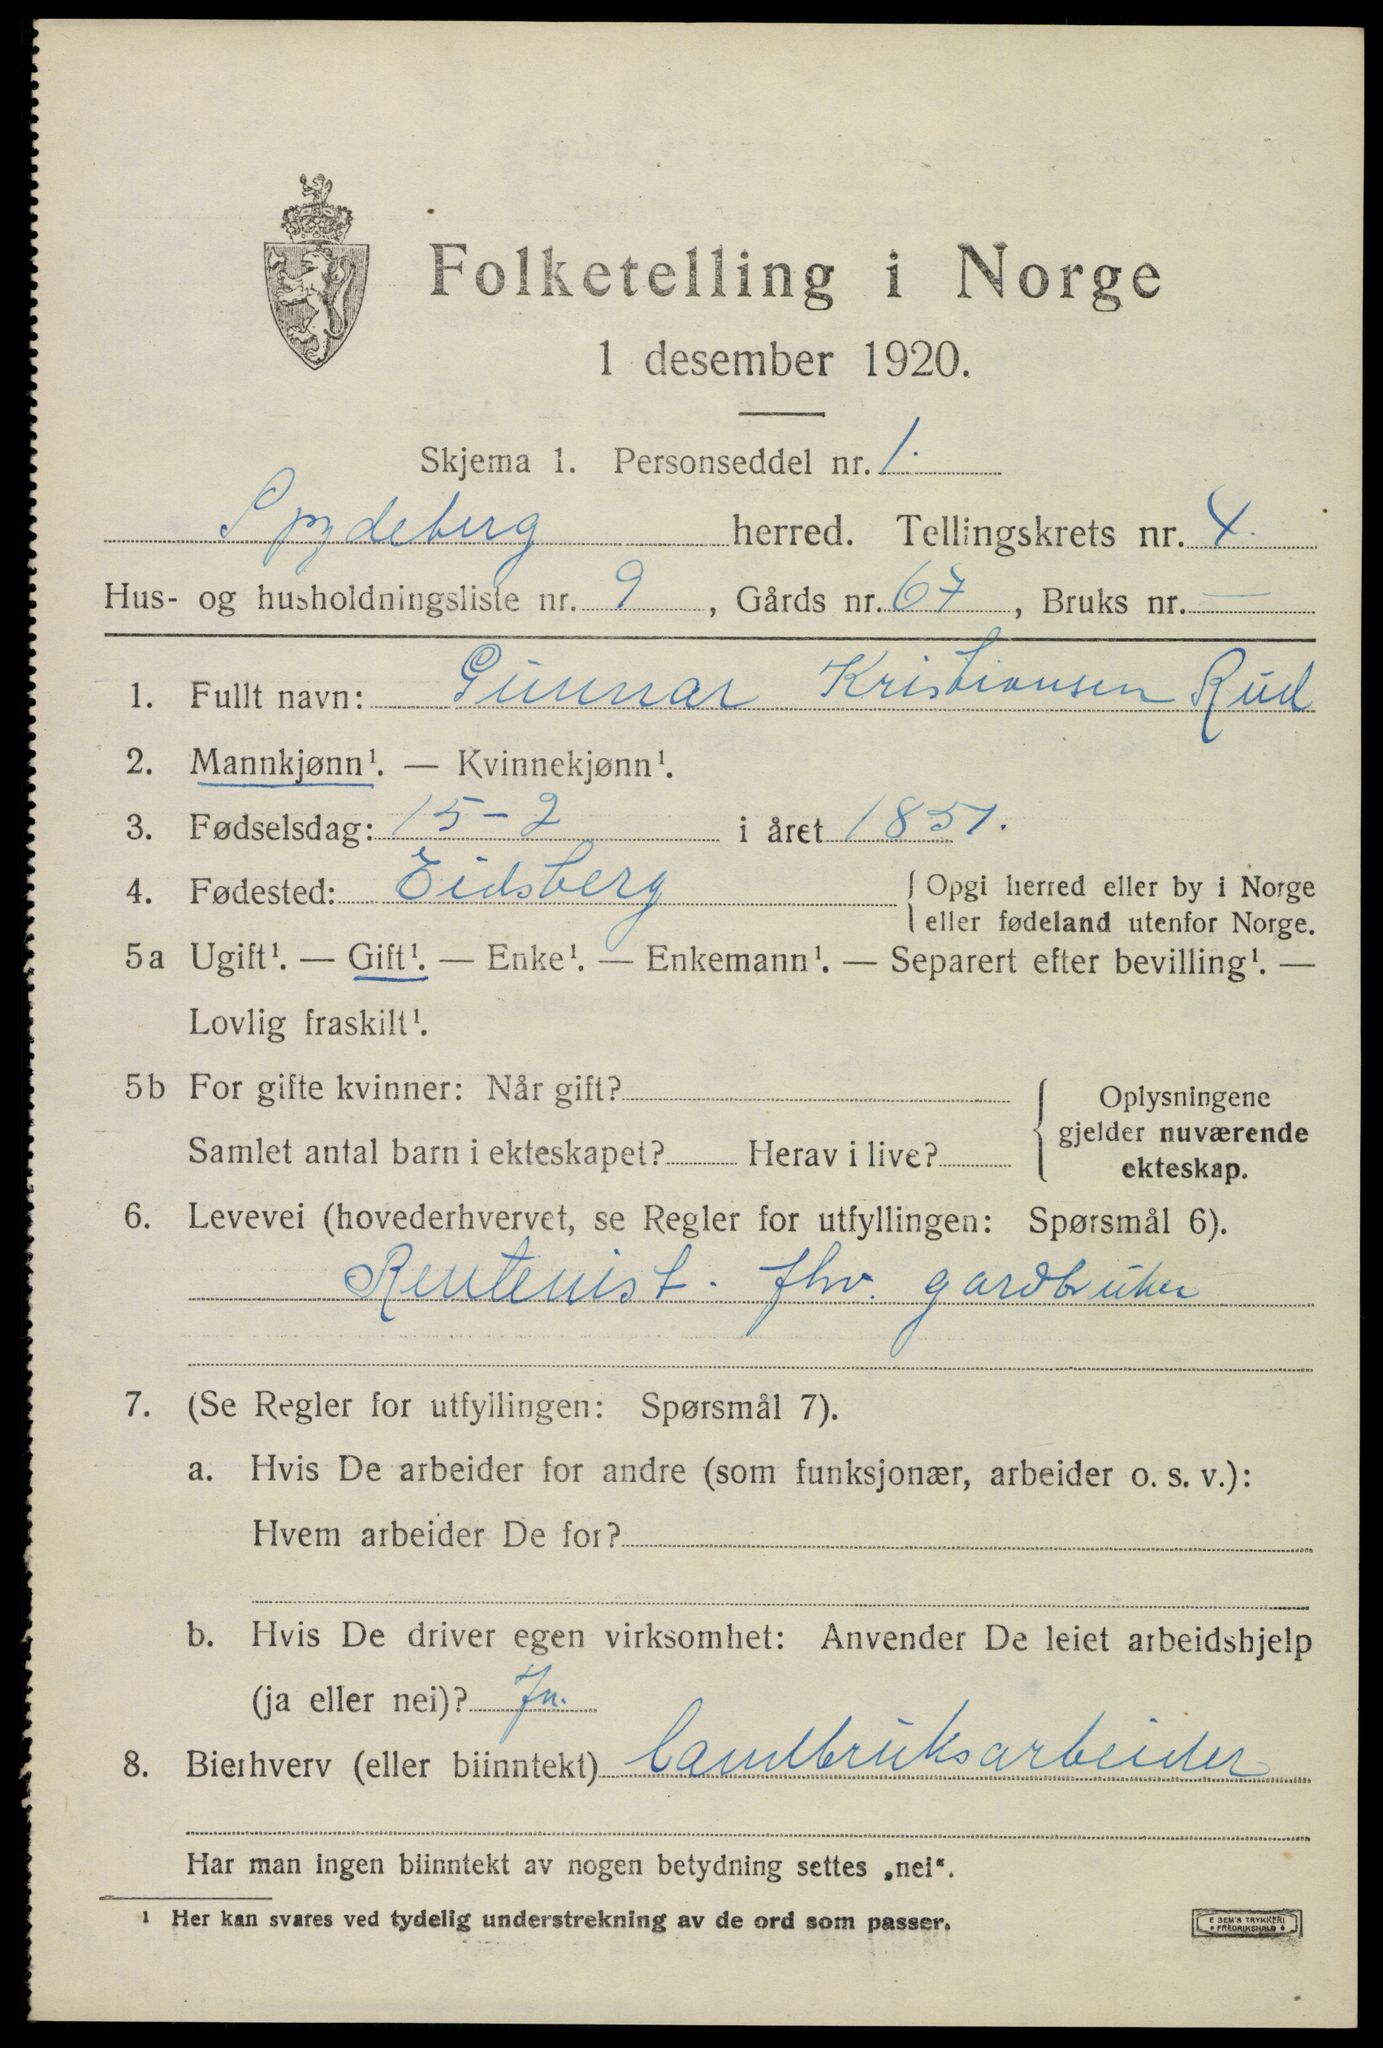 Folketelling i Norge
1 desember 1920.
Skjema 1. Personseddel nr. 1.
Spydeberg herred. Tellingskrets nr. 4.
Hus- og husholdningsliste nr. 9, Gårds nr. 67, Bruks nr. —
1. Fullt navn: Gunnar Kristiansen Rud
2. Mannkjønn¹. — Kvinnekjønn¹.
3. Fødselsdag: 15-2 i året 1851.
4. Fødested: Eidsberg { Opgi herred eller by i Norge
eller fødeland utenfor Norge.
5a Ugift¹. — Gift¹. — Enke¹. — Enkemann¹. — Separert efter bevilling¹. —
Lovlig fraskilt¹.
5b For gifte kvinner: Når gift?
Samlet antal barn i ekteskapet? Herav i live?
{ Oplysningene
gjelder nuværende
ekteskap.
6. Levevei (hovederhvervet, se Regler for utfyllingen: Spørsmål 6).
Rentenist. fhv. gardbruker
7. (Se Regler for utfyllingen: Spørsmål 7).
a. Hvis De arbeider for andre (som funksjonær, arbeider o. s. v.):
Hvem arbeider De for?
b. Hvis De driver egen virksomhet: Anvender De leiet arbeidshjelp
(ja eller nei)? Ja.
8. Bierhverv (eller biinntekt) Landbruksarbeider
Har man ingen biinntekt av nogen betydning settes „nei“.
¹ Her kan svares ved tydelig understrekning av de ord som passer.
E SEM'S TRYKKERI
• FREDRIKSHALD •